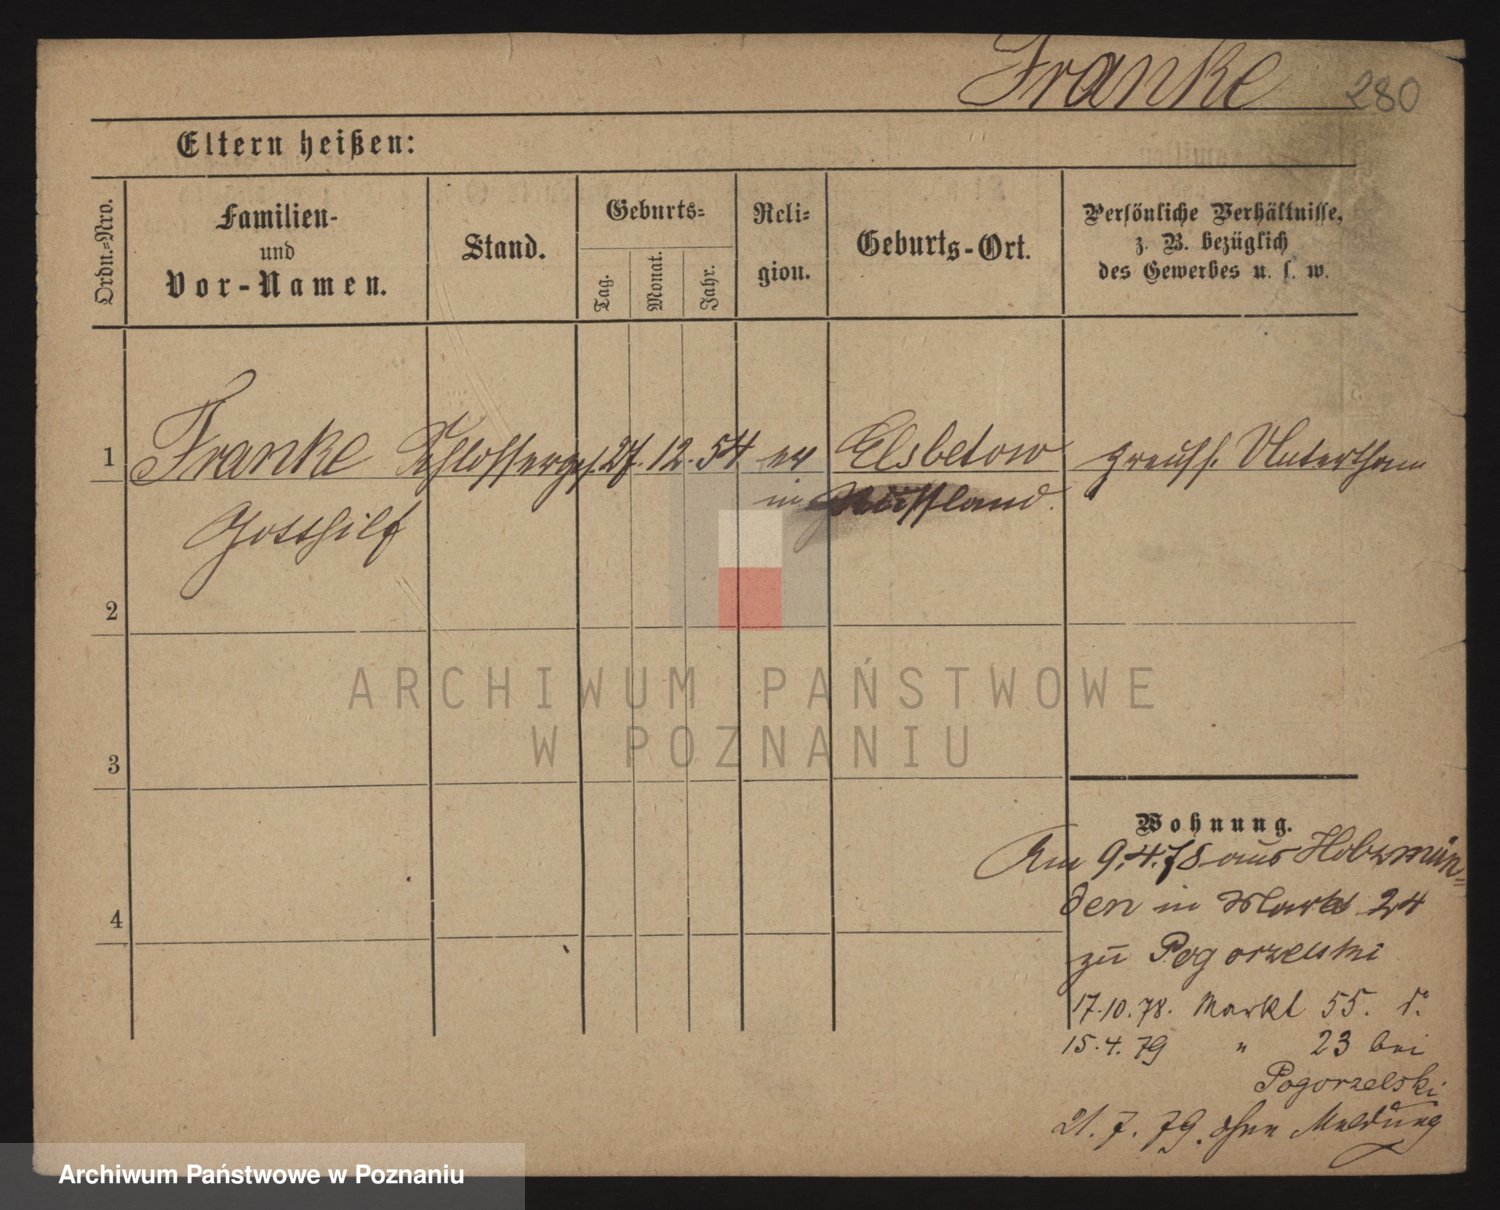 Franke 280
Eltern heißen:
Ordn.-Nro.
Familien-
und
Vor-Namen.
Stand.
Geburts-
Tag.
Monat.
Jahr.
Reli-
gion.
Geburts-Ort.
Persönliche Verhältnisse,
z. B. bezüglich
des Gewerbes u. s. w.
1 Franke Schlosserges. 27. 12. 54 ev Elsbetow preuss. Unterthan
Gotthilf in Russland.
2
3
4
Wohnung.
Am 9.4.78 aus Holzmün-
den in Markt 24
zu Pogorzelski
17.10.78. Markt 55. d.
15.4.79 " 23 bei
Pogorzelski
21.7.79. ohne Meldung
ARCHIWUM PAŃSTWOWE
W POZNANIU
Archiwum Państwowe w Poznaniu